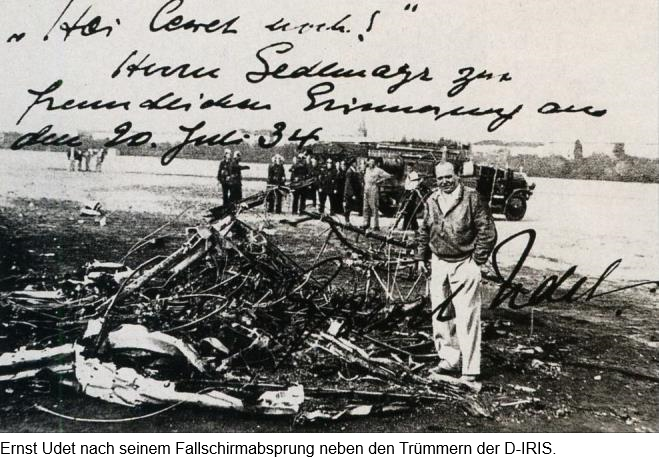 „Hei lewet noch!“
Herrn Sedlmayr zur
freundlichen Erinnerung an
den 20. Juli 34
Ernst Udet
Ernst Udet nach seinem Fallschirmabsprung neben den Trümmern der D-IRIS.